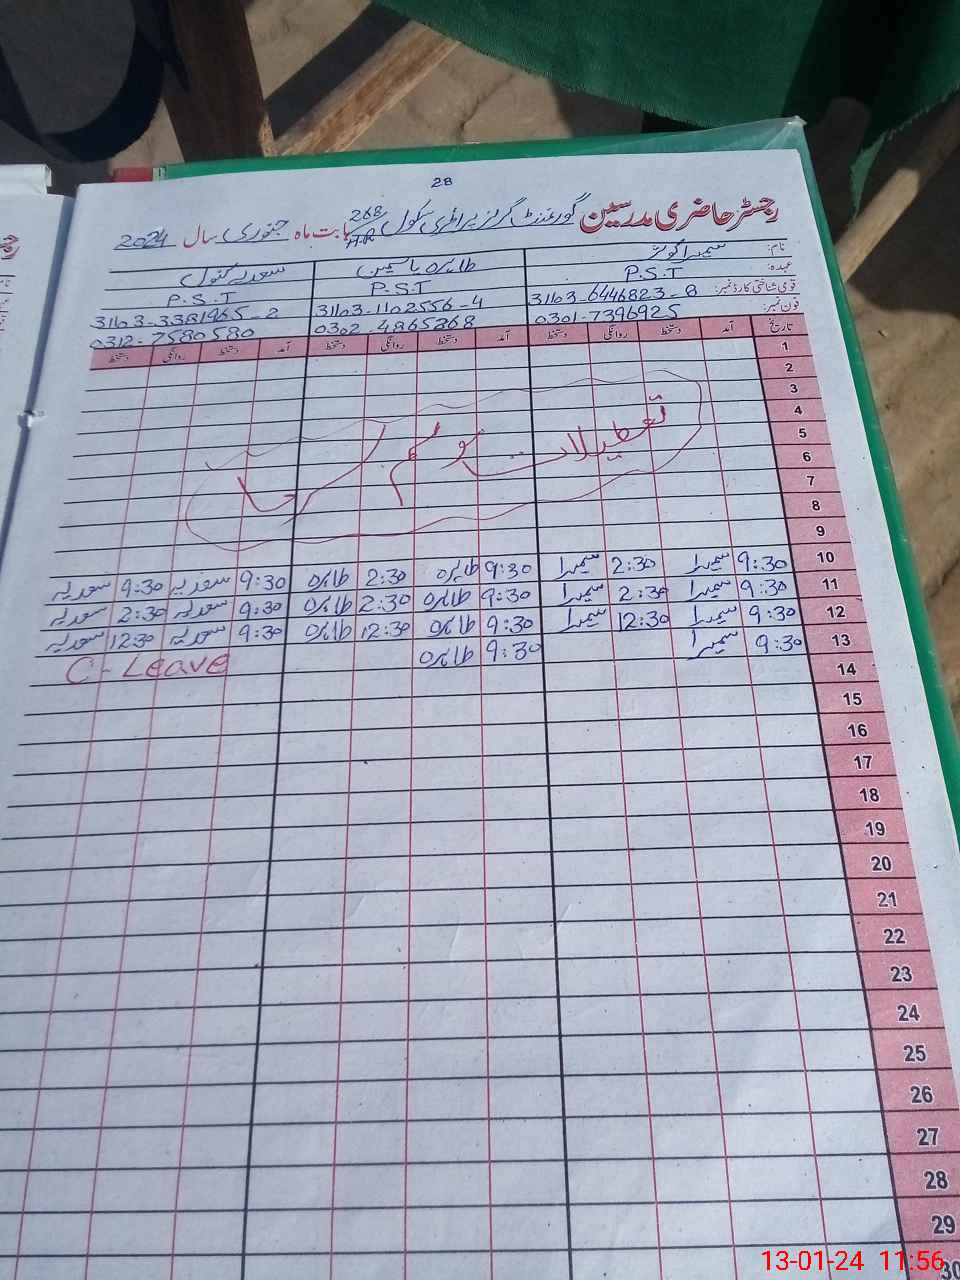 28
رجسٹر حاضری مدرسین گورنمنٹ گرلز پرائمری سکول 268/H.R بابت ماہ جنوری سال 2024
نام: سمیرا کوثر طاہرہ یاسمین سعدیہ کنول
عہدہ: P.S.T P.S.T P.S.T
قومی شناختی کارڈ نمبر: 31103-6446823-8 31103-1102556-4 31103-3381965-2
فون نمبر: 0301-7396925 0302-4865268 0312-7580580
تاریخ آمد دستخط روانگی دستخط آمد دستخط روانگی دستخط آمد دستخط روانگی دستخط
1
2
3
4
تعطیلات موسم سرما
5
6
7
8
9
10 9:30 سمیرا 2:30 سمیرا 9:30 طاہرہ 2:30 طاہرہ 9:30 سعدیہ 9:30 سعدیہ
11 9:30 سمیرا 2:30 سمیرا 9:30 طاہرہ 2:30 طاہرہ 9:30 سعدیہ 2:30 سعدیہ
12 9:30 سمیرا 12:30 سمیرا 9:30 طاہرہ 12:30 طاہرہ 9:30 سعدیہ 12:30 سعدیہ
13 9:30 سمیرا 9:30 طاہرہ C-Leave
14
15
16
17
18
19
20
21
22
23
24
25
26
27
28
29
30
13-01-24 11:56